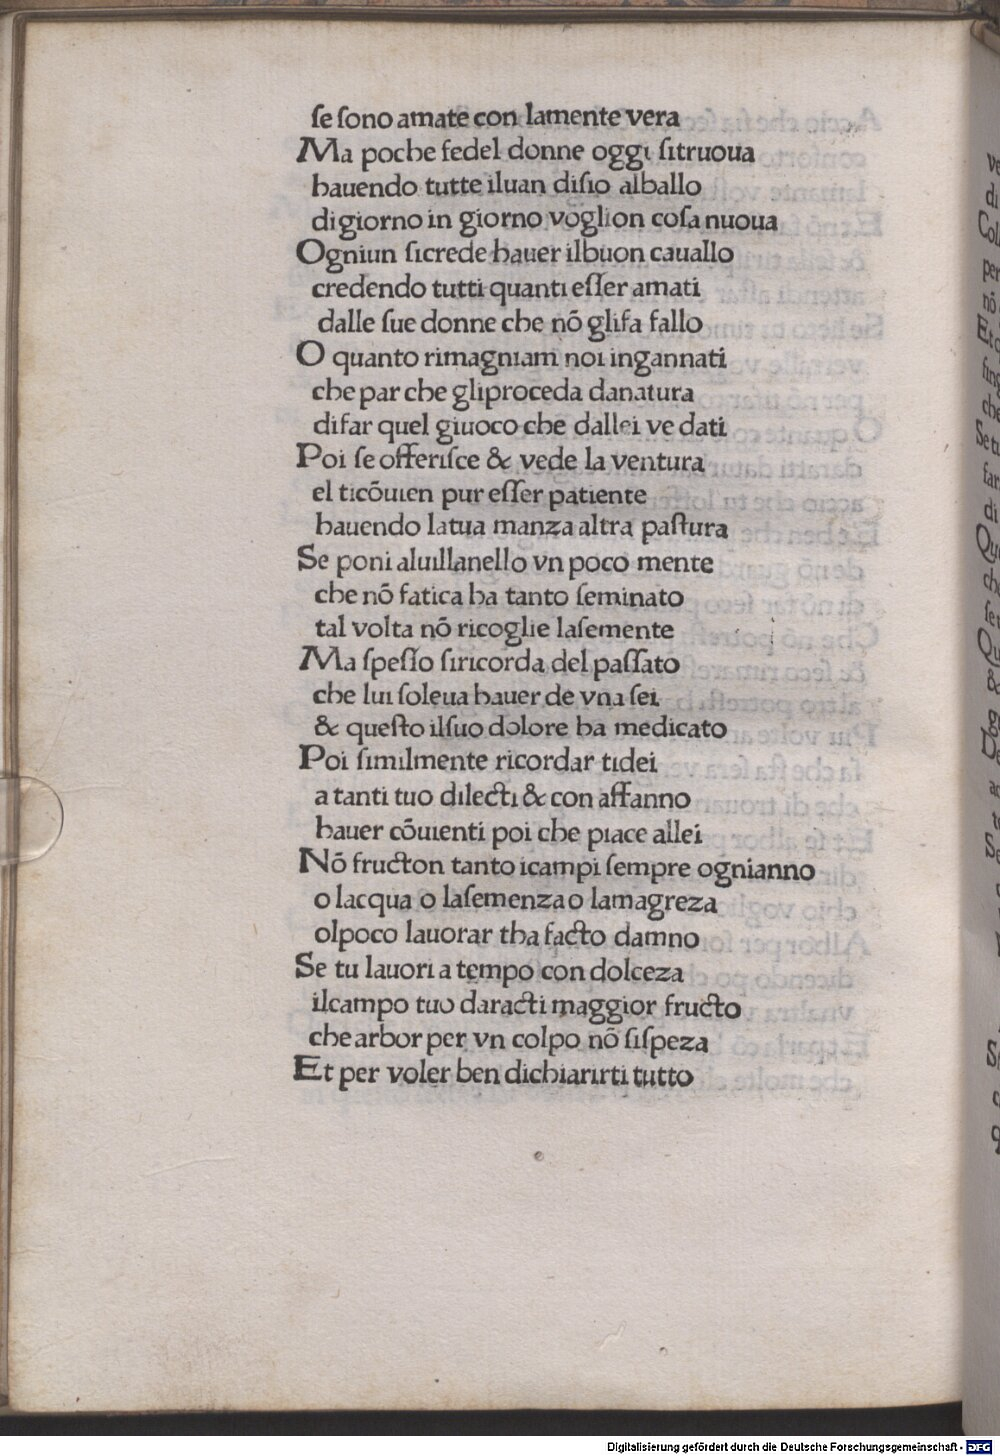 ſe ſono amate con lamente vera
Ma poche fedel donne oggi ſitruoua
hauendo tutte iluan diſio alballo
digiorno in giorno voglion coſa nuoua
Ogniun ſicrede hauer ilbuon cauallo
credendo tutti quanti eſſer amati
dalle ſue donne che nō gliſa fallo
O quanto rimagniam noi ingannati
che par che gliproceda danatura
difar quel giuoco che dallei ve dati
Poi ſe offeriſce & vede la ventura
el ticōuien pur eſſer patiente
hauendo latua manza altra paſtura
Se poni aluillanello vn poco mente
che nō fatica ha tanto ſeminato
tal volta nō ricoglie laſemente
Ma ſpeſſo ſiricorda del paſſato
che lui ſoleua hauer de vna ſei
& queſto ilſuo dolore ha medicato
Poi ſimilmente ricordar tidei
a tanti tuo dilecti & con affanno
hauer cōuienti poi che piace allei
Nō fructon tanto icampi ſempre ognianno
o lacqua o laſemenza o lamagreza
olpoco lauorar tha facto damno
Se tu lauori a tempo con dolceza
ilcampo tuo daracti maggior fructo
che arbor per vn colpo nō ſiſpeza
Et per voler ben dichiarirti tutto
Digitalisierung gefördert durch die Deutsche Forschungsgemeinschaft - DFG